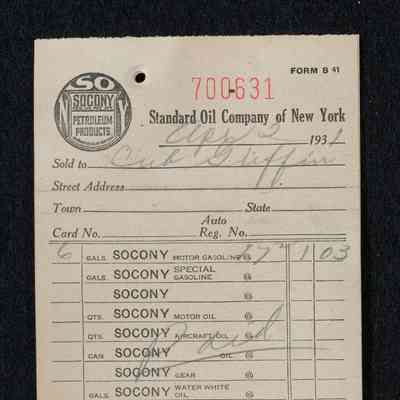 FORM B 41
SO
SOCONY
PETROLEUM
PRODUCTS
N Y
700-631
Standard Oil Company of New York
Apr 2 1931
Sold to Cub Griffin
Street Address
Town State
Card No. Auto Reg. No.
6 GALS. SOCONY MOTOR GASOLINE @ 17 1 03
GALS. SOCONY SPECIAL GASOLINE @
SOCONY @
QTS. SOCONY MOTOR OIL @
QTS. SOCONY AIRCRAFT OIL @
CAN SOCONY OIL @
Paid
SOCONY GEAR @
GALS. SOCONY WATER WHITE OIL @